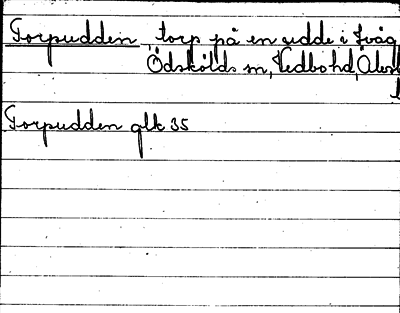 Torpudden, torp på en udde i Iväg
Ödskölds sn, Vedbo hd, Älvs
Torpudden glk 35